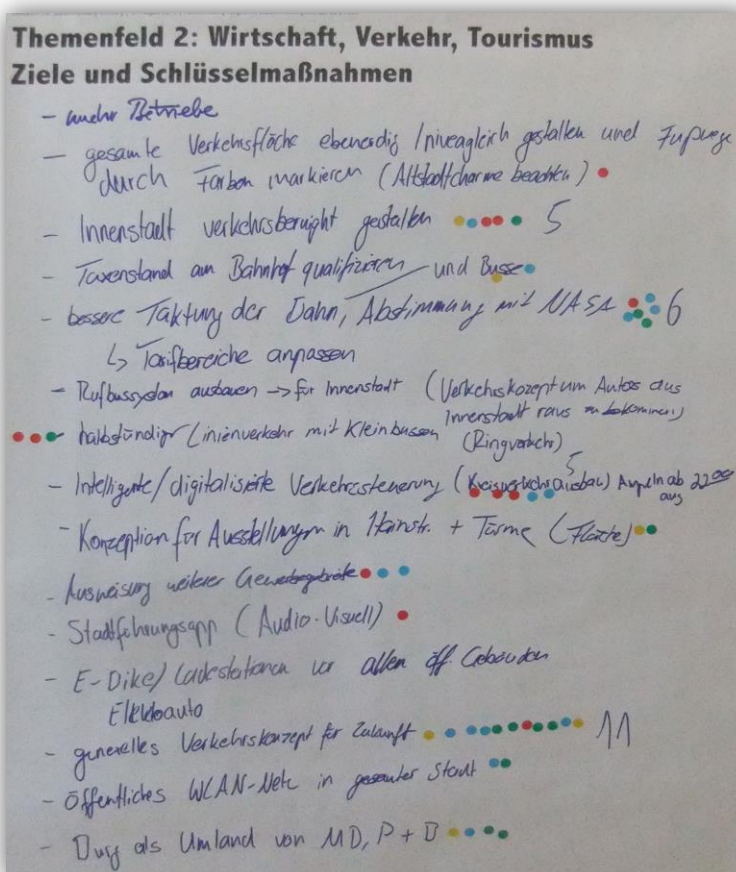 Themenfeld 2: Wirtschaft, Verkehr, Tourismus
Ziele und Schlüsselmaßnahmen
- mehr Betriebe
- gesamte Verkehrsfläche ebenerdig / niveaugleich gestalten und Fußwege
durch Farben markieren (Altstadtcharme beachten)
- Innenstadt verkehrsberuhigt gestalten 5
- Taxenstand am Bahnhof qualifizieren und Busse
- bessere Taktung der Bahn, Abstimmung mit NASA 6
↳ Tarifbereiche anpassen
- Rufbussystem ausbauen → für Innenstadt (Verkehrskonzept um Autos aus
Innenstadt raus zu bekommen)
halbstündiger Linienverkehr mit Kleinbussen (Ringverkehr)
- Intelligente/digitalisierte Verkehrssteuerung (Kreisverkehrausbau) 5 Ampeln ab 22⁰⁰
aus
- Konzeption für Ausstellungen in Hainstr. + Türme (Fläche)
- Ausweisung weiterer Gewerbegebiete
- Stadtführungsapp (Audio-Visuell)
- E-Bike/ Ladestationen vor allen öff. Gebäuden
Elektroauto
- generelles Verkehrskonzept für Zukunft 11
- öffentliches WLAN-Netz in gesamter Stadt
- Burg als Umland von MD, P + B